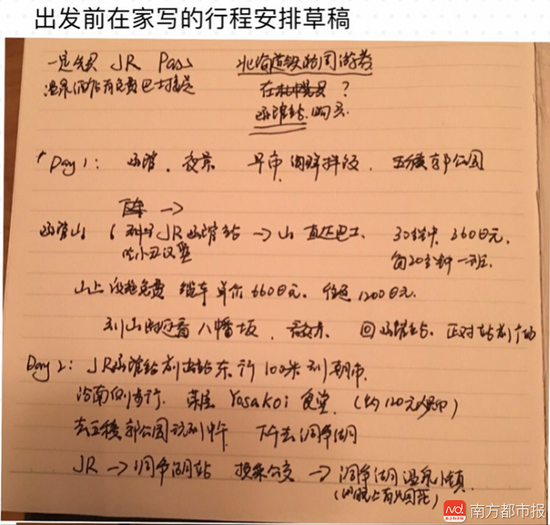 出发前在家写的行程安排草稿
一定要买 JR Pass 北海道铁路周游券
温泉酒店有免费巴士接送 在 ?
函馆站 购买
Day 1: 函馆. 夜景 早市 海鲜拌饭. 五稜郭公园
→
函馆山 JR函馆站 → 山 直达巴士. 30分钟. 360日元.
吃小丑汉堡 每20分钟一班.
山上 免费 缆车 单价 660日元. 往返 1200日元.
到山 看八幡坂. 回函馆站. 正对站前广场
Day 2: JR函馆站前出站东行100米到朝市.
沿南侧步行. 来 Yosakoi 食堂. ( 120元人民币)
去五稜郭公园玩到中午 下午去洞爷湖
JR → 洞爷湖站 换乘公交 → 洞爷湖温泉小镇.
(晚上有烟花)
南方都市报